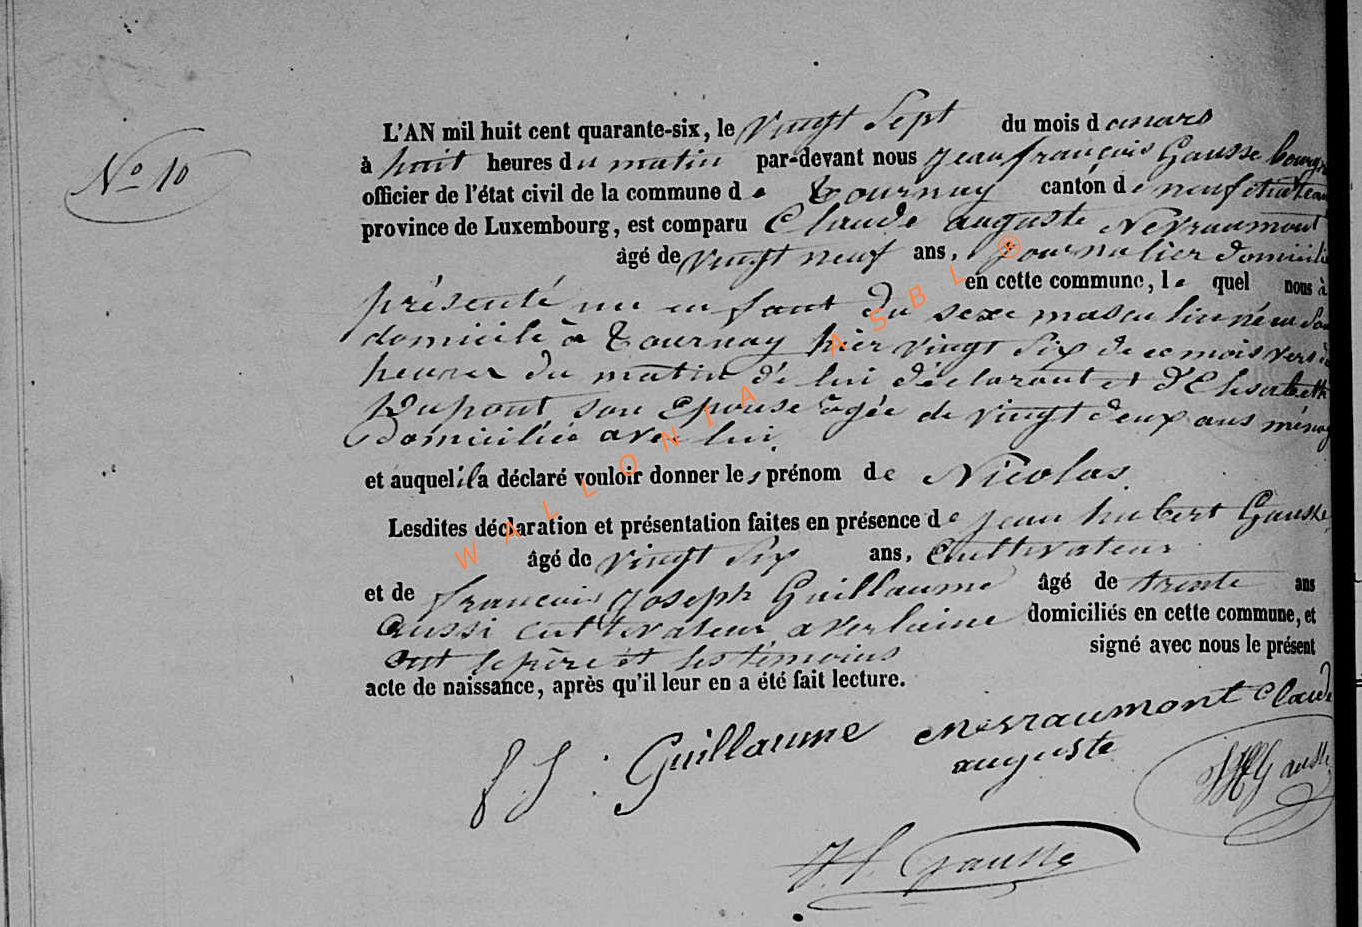 No 10
L'AN mil huit cent quarante-six, le vingt sept du mois d mars
à huit heures du matin par-devant nous jean françois Gausse bourg
officier de l'état civil de la commune de Tournay canton de neufchateau
province de Luxembourg, est comparu Claude auguste Nevraumont
âgé de vingt neuf ans, journalier domicilié
en cette commune, le quel nous à
présenté un enfant du sexe masculin né en son
domicile à Tournay hier vingt six de ce mois vers
heures du matin de lui déclarant et d'Elisabeth
Dupont son épouse âgée de vingt deux ans ménag
domiciliée avec lui.
et auquel il a déclaré vouloir donner les prénom de Nicolas.
Lesdites déclaration et présentation faites en présence de jean hubert Gausse
âgé de vingt six ans, Cultivateur
et de francois joseph Guillaume âgé de trente ans
aussi cultivateur a verlaine domiciliés en cette commune, et
ont le père et les témoins signé avec nous le présent
acte de naissance, après qu'il leur en a été fait lecture.
f. J : Guillaume Nevraumont Claude
auguste
JH Gausse
J. f. Gausse
WALLONIA ASBL ®